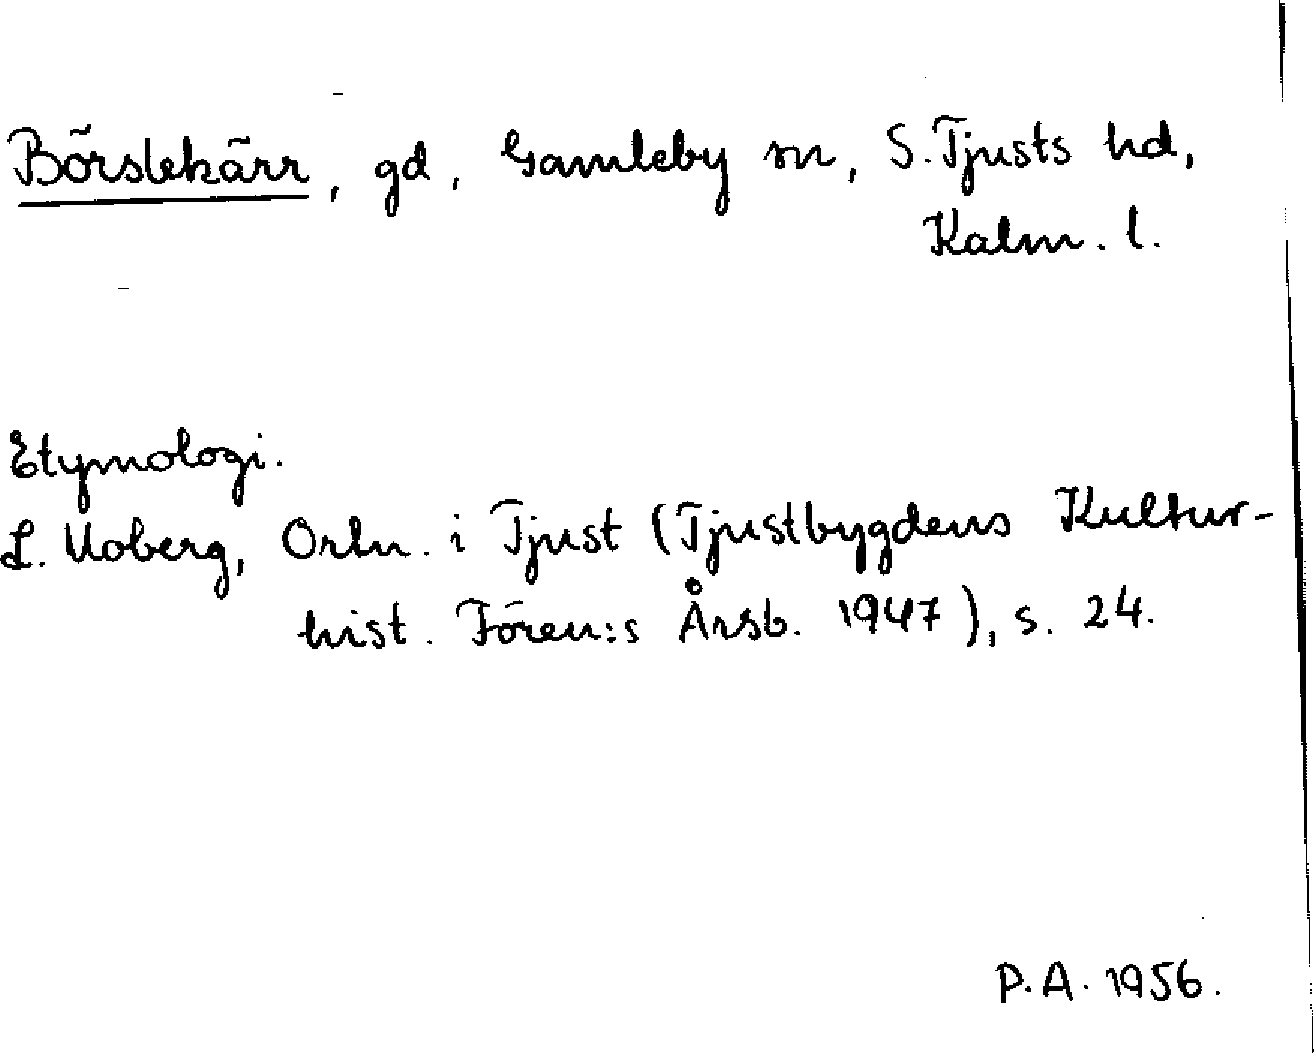 Börslekärr, gd, Gamleby sn, S. Tjusts hd,
Kalm. l.
Etymologi.
L. Moberg, Ortn. i Tjust (Tjustbygdens Kultur-
hist. Fören:s Årsb. 1947), s. 24.
P.A. 1956.